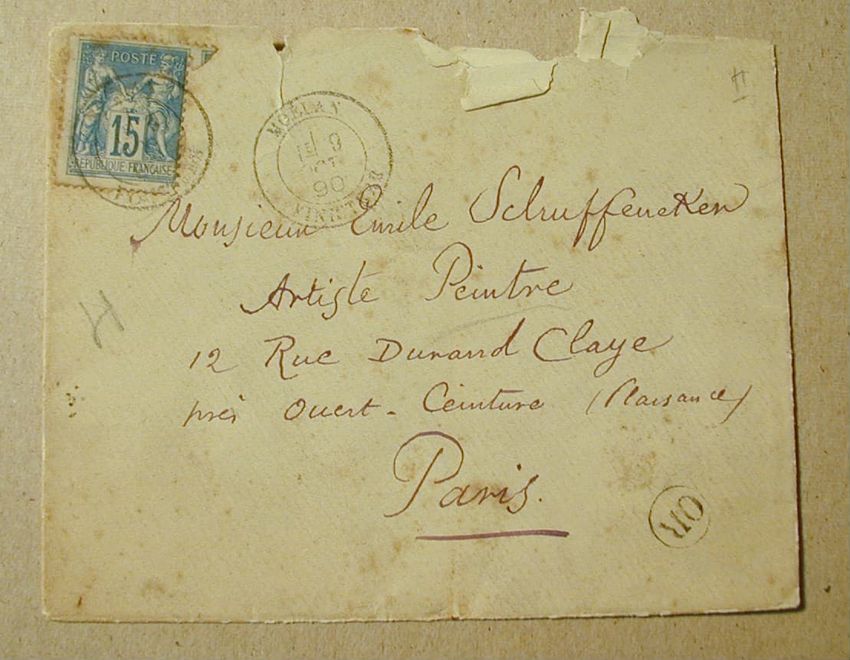 POSTE
15
REPUBLIQUE FRANÇAISE
MOELAN
9
90
FINISTERE
H
Monsieur Emile Schuffenecker
Artiste Peintre
H
12 Rue Durand Claye
près Ouest-Ceinture (Plaisance)
Paris.
OR